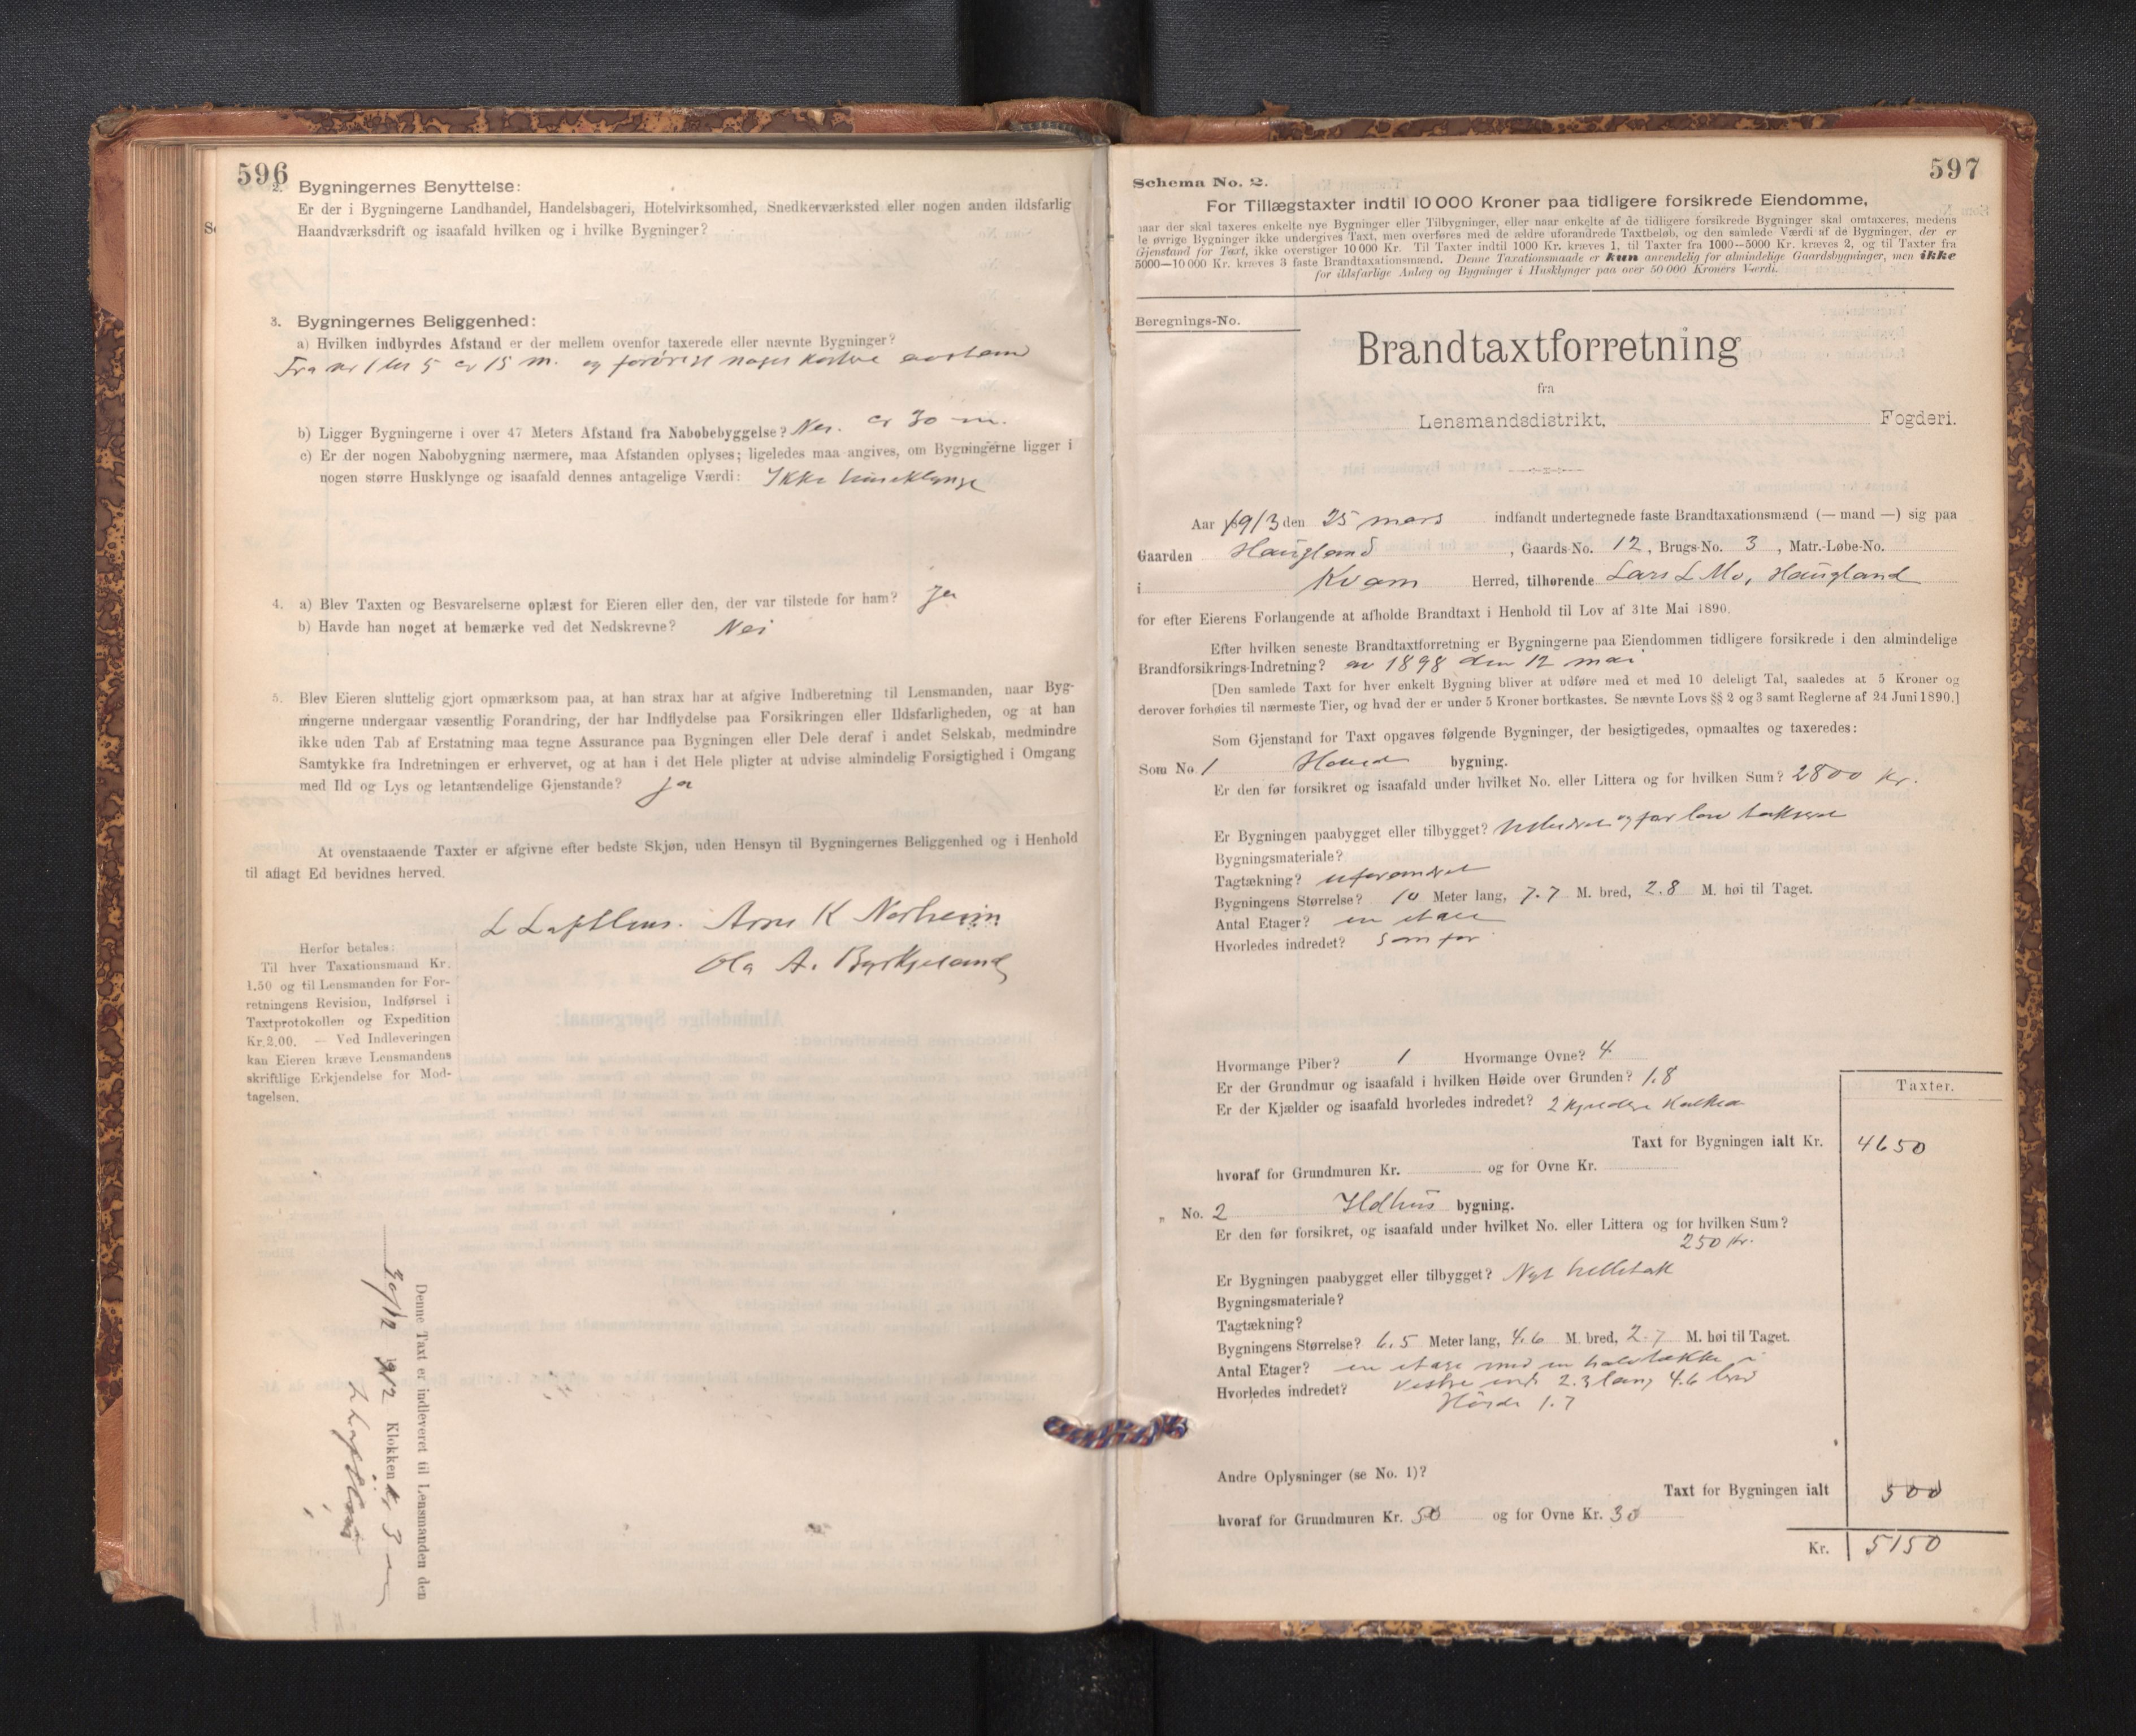 596
2. Bygningernes Benyttelse:
Er der i Bygningerne Landhandel, Handelsbageri, Hotelvirksomhed, Snedkerværksted eller nogen anden ildsfarlig
Haandværksdrift og isaafald hvilken og i hvilke Bygninger?
3. Bygningernes Beliggenhed:
a) Hvilken indbyrdes Afstand er der mellem ovenfor taxerede eller nævnte Bygninger?
Fra nr 1 til 5 er 15 m. og forörigt noget kortere avstand
b) Ligger Bygningerne i over 47 Meters Afstand fra Nabobebyggelse? Nei. er 30 m.
c) Er der nogen Nabobygning nærmere, maa Afstanden oplyses; ligeledes maa angives, om Bygningerne ligger i
nogen større Husklynge og isaafald dennes antagelige Værdi: Ikke huseklynge
4. a) Blev Taxten og Besvarelserne oplæst for Eieren eller den, der var tilstede for ham? Ja
b) Havde han noget at bemærke ved det Nedskrevne? Nei
5. Blev Eieren sluttelig gjort opmærksom paa, at han strax har at afgive Indberetning til Lensmanden, naar Byg-
ningerne undergaar væsentlig Forandring, der har Indflydelse paa Forsikringen eller Ildsfarligheden, og at han
ikke uden Tab af Erstatning maa tegne Assurance paa Bygningen eller Dele deraf i andet Selskab, medmindre
Samtykke fra Indretningen er erhvervet, og at han i det Hele pligter at udvise almindelig Forsigtighed i Omgang
med Ild og Lys og letantændelige Gjenstande? ja
At ovenstaaende Taxter er afgivne efter bedste Skjøn, uden Hensyn til Bygningernes Beliggenhed og i Henhold
til aflagt Ed bevidnes herved.
Arne K Norheim
Ola A. Byrkjeland
Herfor betales:
Til hver Taxationsmand Kr.
1.50 og til Lensmanden for For-
retningens Revision, Indførsel i
Taxtprotokollen og Expedition
Kr. 2.00. — Ved Indleveringen
kan Eieren kræve Lensmandens
skriftlige Erkjendelse for Mod-
tagelsen.
Denne Taxt er indleveret til Lensmanden den
30/12 1912 Klokken 3
597
Schema No. 2.
For Tillægstaxter indtil 10 000 Kroner paa tidligere forsikrede Eiendomme,
naar der skal taxeres enkelte nye Bygninger eller Tilbygninger, eller naar enkelte af de tidligere forsikrede Bygninger skal omtaxeres, medens
le øvrige Bygninger ikke undergives Taxt, men overføres med de ældre uforandrede Taxtbeløb, og den samlede Værdi af de Bygninger, der er
Gjenstand for Taxt, ikke overstiger 10 000 Kr. Til Taxter indtil 1000 Kr. kræves 1, til Taxter fra 1000—5000 Kr. kræves 2, og til Taxter fra
5000—10 000 Kr. kræves 3 faste Brandtaxationsmænd. Denne Taxationsmaade er kun anvendelig for almindelige Gaardsbygninger, men ikke
for ildsfarlige Anlæg og Bygninger i Husklynger paa over 50 000 Kroners Værdi.
Beregnings-No.
Brandtaxtforretning
fra
Lensmandsdistrikt, Fogderi.
Aar 1913 den 25 mars indfandt undertegnede faste Brandtaxationsmænd (— mand —) sig paa
Gaarden Haugland, Gaards-No. 12, Brugs-No. 3, Matr.-Løbe-No.
i Kvam Herred, tilhørende Lars L Mo, Haugland
for efter Eierens Forlangende at afholde Brandtaxt i Henhold til Lov af 31te Mai 1890.
Efter hvilken seneste Brandtaxtforretning er Bygningerne paa Eiendommen tidligere forsikrede i den almindelige
Brandforsikrings-Indretning? av 1898 den 12 mai
[Den samlede Taxt for hver enkelt Bygning bliver at udføre med et med 10 deleligt Tal, saaledes at 5 Kroner og
derover forhøies til nærmeste Tier, og hvad der er under 5 Kroner bortkastes. Se nævnte Lovs §§ 2 og 3 samt Reglerne af 24 Juni 1890.]
Som Gjenstand for Taxt opgaves følgende Bygninger, der besigtigedes, opmaaltes og taxeredes:
Som No. 1 Hoved bygning.
Er den før forsikret og isaafald under hvilket No. eller Littera og for hvilken Sum? 2800 kr.
Er Bygningen paabygget eller tilbygget? og for lav taksert
Bygningsmateriale?
Tagtækning? uforandret
Bygningens Størrelse? 10 Meter lang, 7.7 M. bred, 2.8 M. høi til Taget.
Antal Etager? en etage
Hvorledes indredet? som før
Hvormange Piber? 1 Hvormange Ovne? 4
Er der Grundmur og isaafald i hvilken Høide over Grunden? 1.8
Er der Kjælder og isaafald hvorledes indredet? 2 kjeldere
Taxter.
Taxt for Bygningen ialt Kr. 4650
hvoraf for Grundmuren Kr. og for Ovne Kr.
„ No. 2 Ildhus bygning.
Er den før forsikret, og isaafald under hvilket No. eller Littera og for hvilken Sum?
250 kr.
Er Bygningen paabygget eller tilbygget? Nyt helletak
Bygningsmateriale?
Tagtækning?
Bygningens Størrelse? 6.5 Meter lang, 4.6 M. bred, 2.7 M. høi til Taget.
Antal Etager? en etage med en halvtække i
Hvorledes indredet? vestre ende 2.3 lang 4.6 bred
Höide 1.7
Andre Oplysninger (se No. 1)?
Taxt for Bygningen ialt 500
hvoraf for Grundmuren Kr. 50 og for Ovne Kr. 30
Kr. 5150